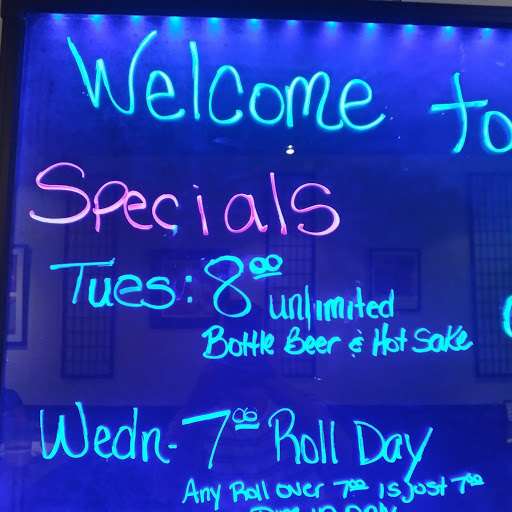 Welcome to
Specials
Tues: 8.00 unlimited
Bottle Beer & Hot Sake
Wedn- 7.00 Roll Day
Any Roll over 7.00 is just 7.00